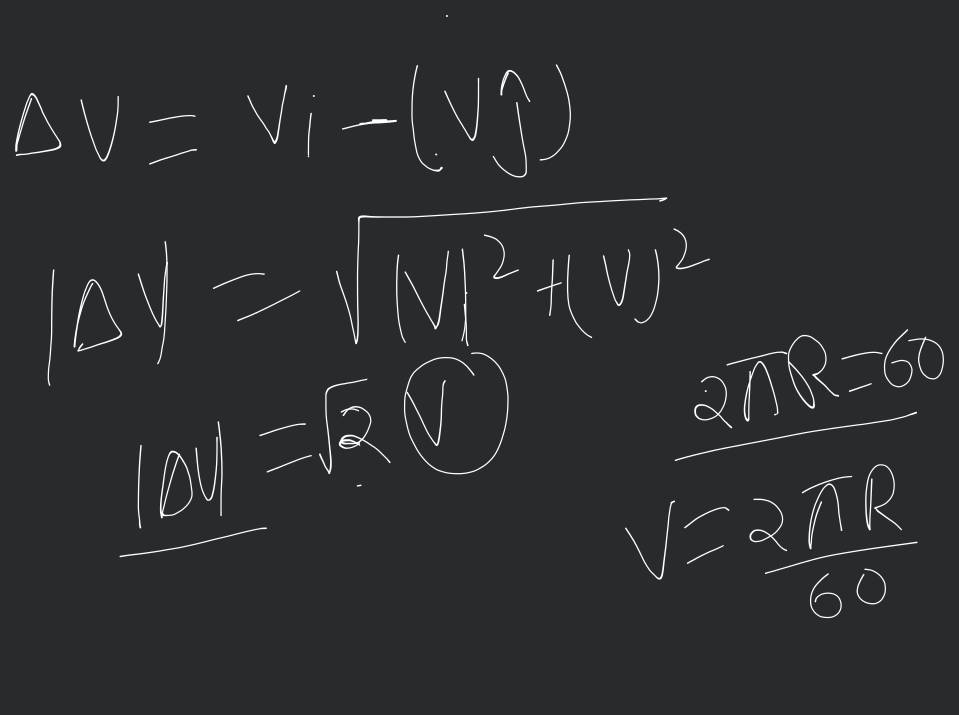 ΔV = Vi - (Vĵ)
|ΔV| = √(|V|² + (V)²)
|ΔV| = √2 V
2πR = 60
V = 2πR/60